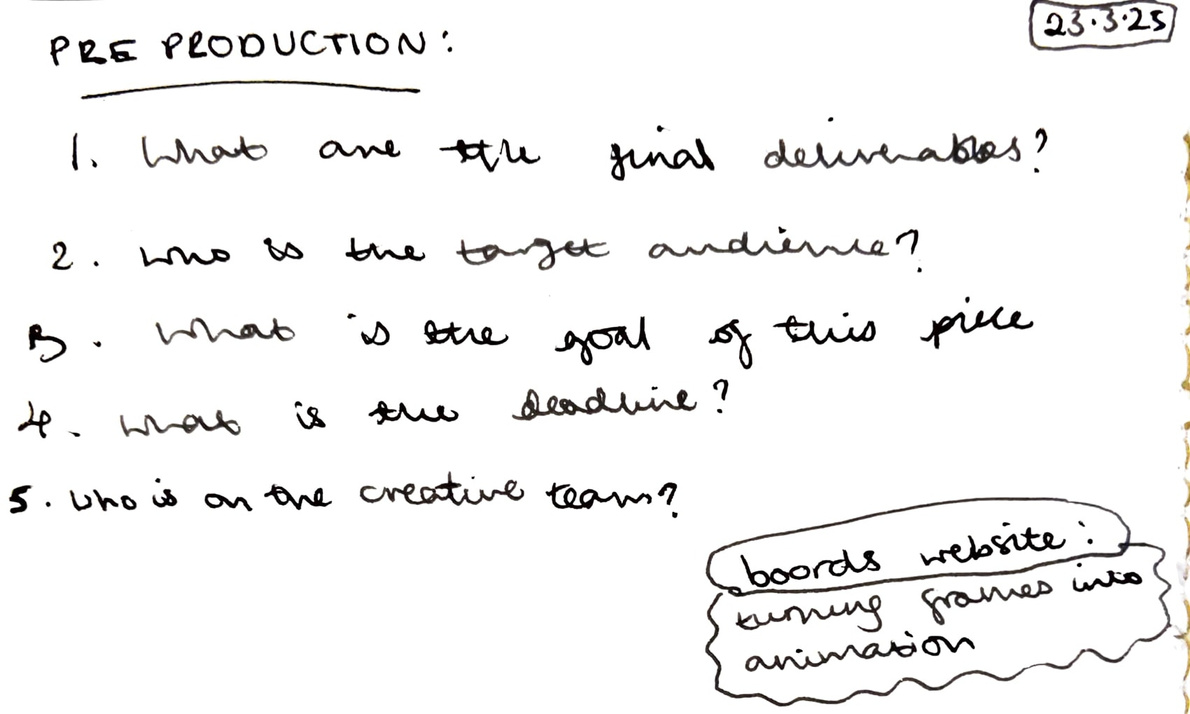 23.3.25
PRE PRODUCTION:
1. What are the final deliverables?
2. who is the target audience?
3. What is the goal of this piece
4. what is the deadline?
5. who is on the creative team?
boords website:
turning frames into
animation